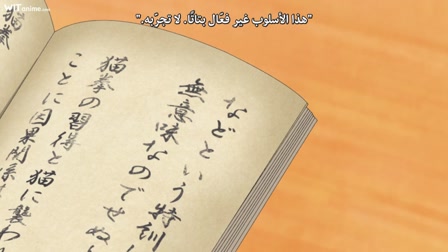 WITanime.com
"هذا الأسلوب غير فعّال بتاتًا. لا تجرّبه."
などという特訓
無意味なのでせぬ
猫拳の習得と猫に襲わ
ことに因果関係
猫拳